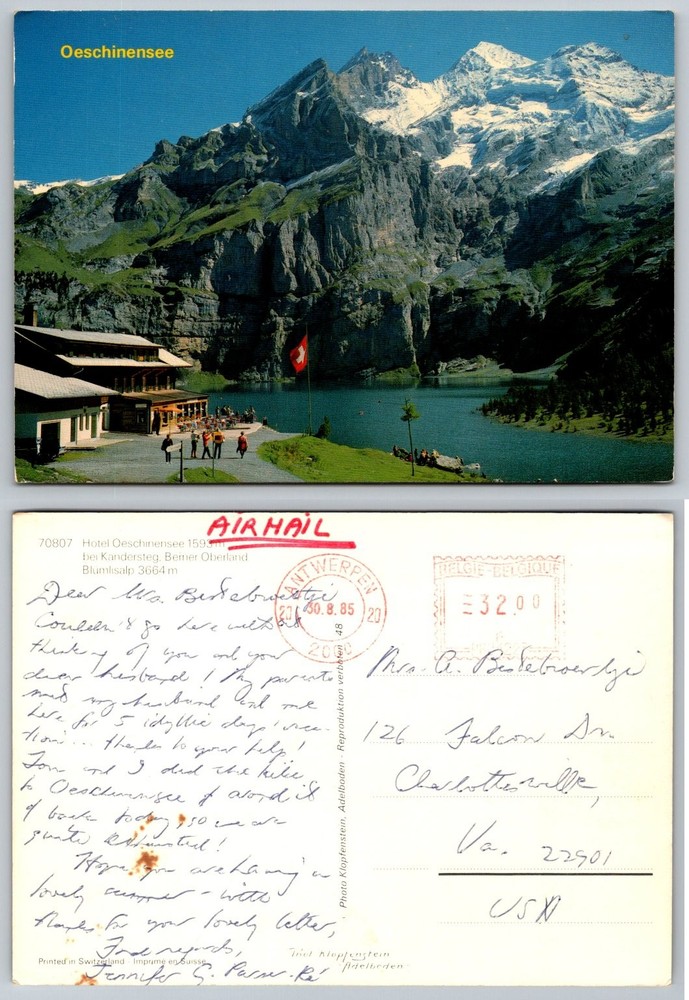 Oeschinensee
AIRMAIL
70807 Hotel Oeschinensee 1593 m
bei Kandersteg, Berner Oberland
Blümlisalp 3664 m
ANTWERPEN
20 30.8.85 20
2000
BELGIE-BELGIQUE
3200
Dear Mrs.
Couldn't go here without
thinking of you and your
dear husband! My parents
and my husband and me
here for 5 idyllic days'
thanks to your help!
Tom and I did the hike
to Oeschinensee & around it
& back today, so we are
quite exhausted!
Hope you are having a
lovely summer - with
thanks for your lovely letter,
Fond regards,
Jennifer G.
Photo Klopfenstein, Adelboden - Reproduktion verboten 48
Mrs. A.
126 Falcon Dr.
Charlottesville,
Va. 22901
USA
Printed in Switzerland - Imprimé en Suisse
Klopfenstein
Adelboden